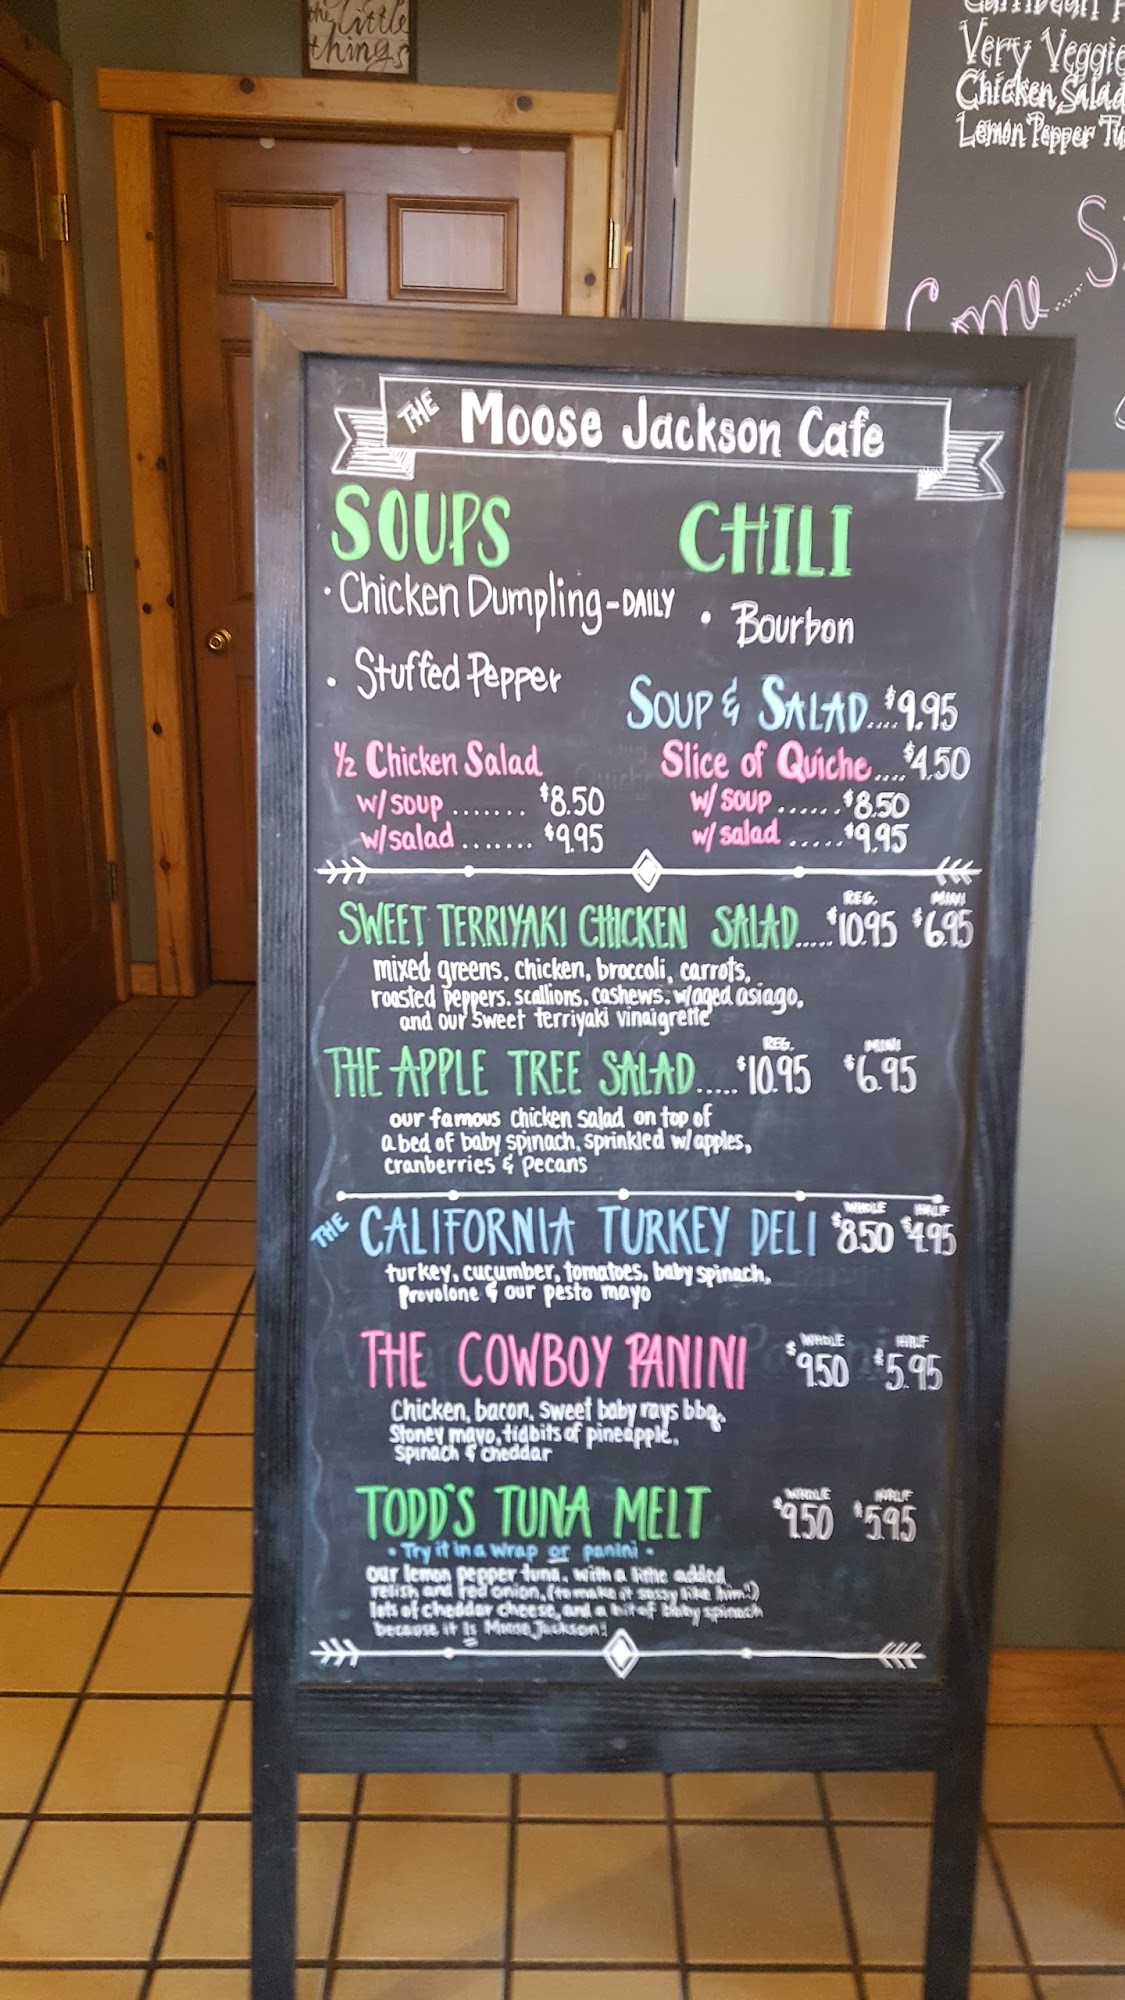 the little
things
Very Veggie
Chicken Salad
Lemon Pepper
Come.....
THE Moose Jackson Cafe
SOUPS
• Chicken Dumpling - DAILY
• Stuffed Pepper
CHILI
• Bourbon
SOUP & SALAD....$9.95
½ Chicken Salad
w/ soup ....... $8.50
w/salad ....... $9.95
Slice of Quiche....$4.50
w/ soup ......$8.50
w/ salad .....$9.95
REG. MINI
SWEET TERRIYAKI CHICKEN SALAD.....$10.95 $6.95
mixed greens, chicken, broccoli, carrots,
roasted peppers, scallions, cashews, w/aged asiago,
and our sweet terriyaki vinaigrette
REG. MINI
THE APPLE TREE SALAD.....$10.95 $6.95
our famous chicken salad on top of
a bed of baby spinach, sprinkled w/apples,
cranberries & pecans
WHOLE HALF
THE CALIFORNIA TURKEY DELI $8.50 $4.95
turkey, cucumber, tomatoes, baby spinach,
provolone & our pesto mayo
WHOLE HALF
THE COWBOY PANINI $9.50 $5.95
Chicken, bacon, sweet baby rays bbq,
Stoney mayo, tidbits of pineapple,
spinach & cheddar
WHOLE HALF
TODD'S TUNA MELT $9.50 $5.95
• Try it in a wrap or panini •
our lemon pepper tuna, with a little added
relish and red onion, (to make it sassy like him!)
lots of cheddar cheese, and a bit of baby spinach
because it is Moose Jackson!